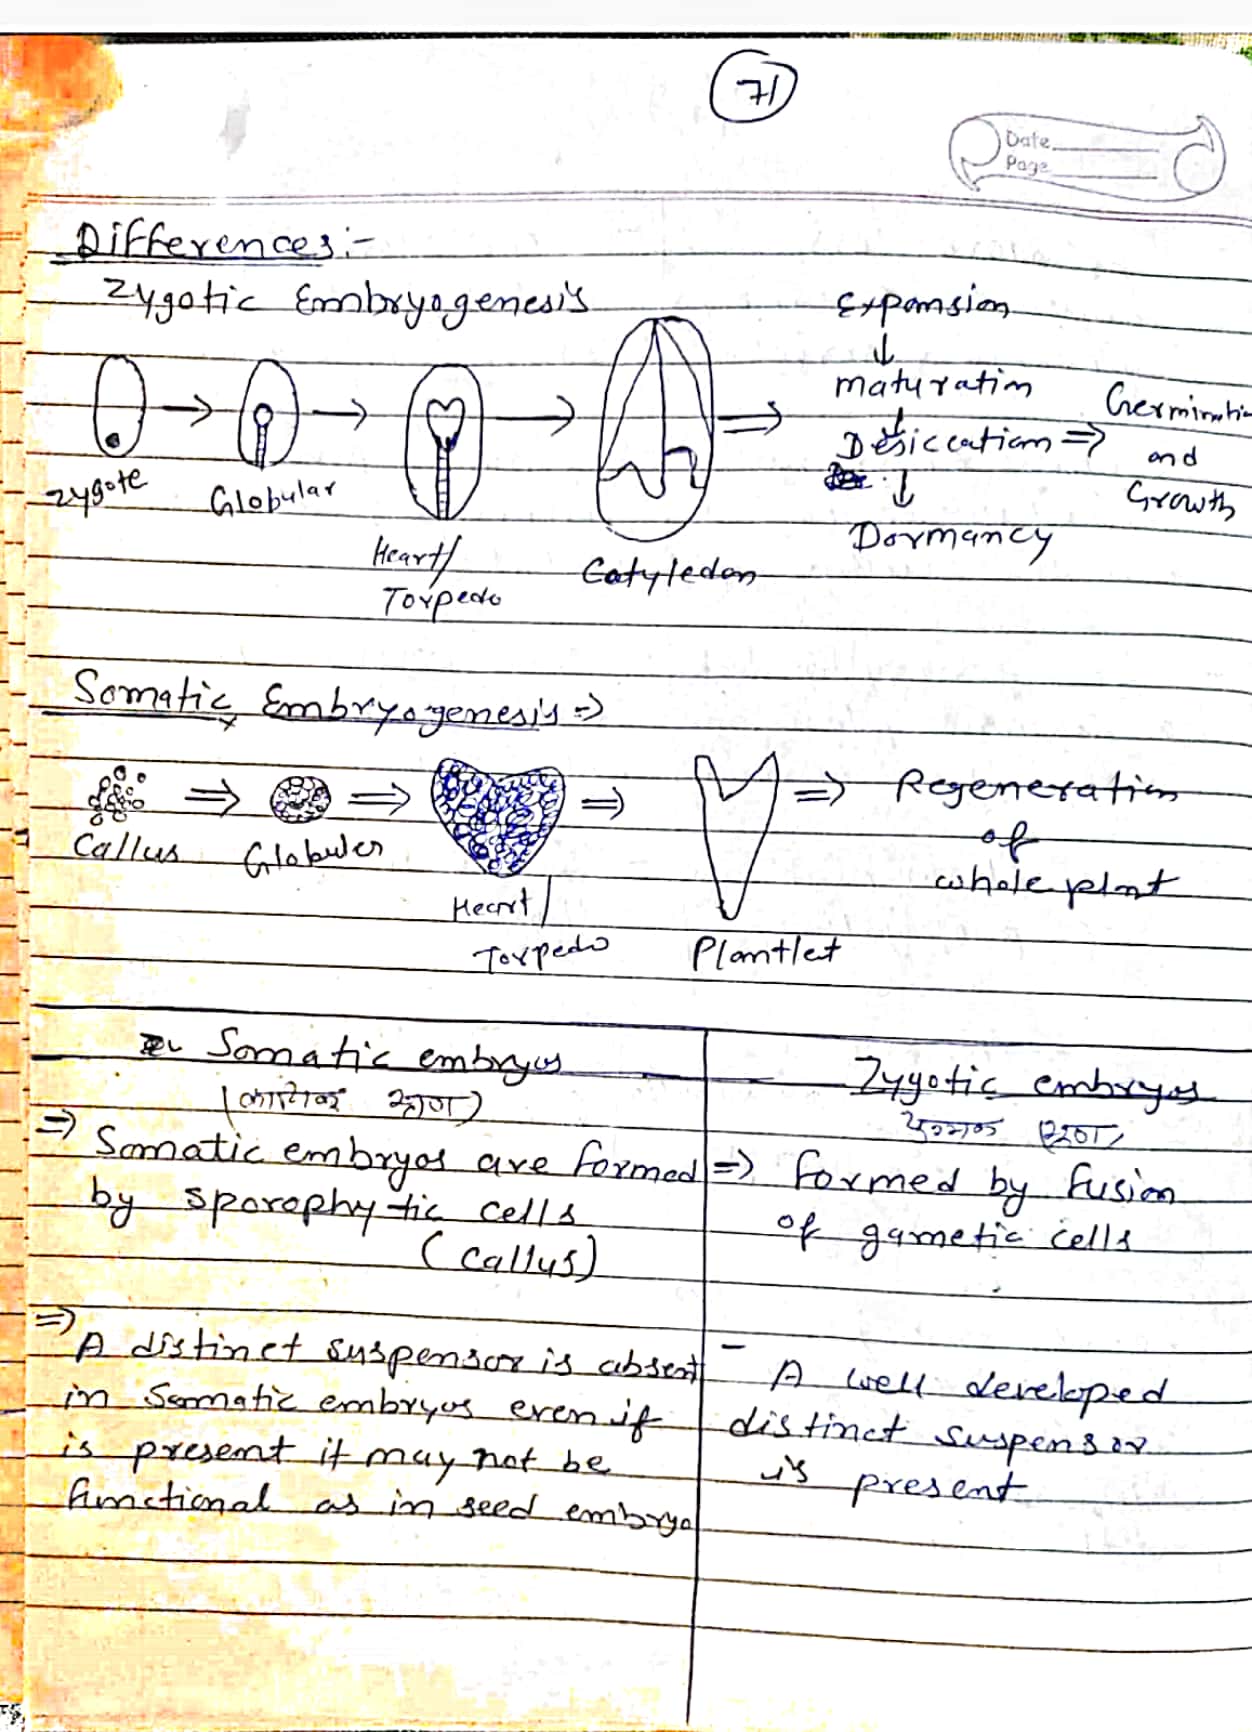 71
Date
Page
Differences:-
Zygotic Embryogenesis
Zygote
Globular
Heart/
Torpedo
Cotyledon
Expansion
↓
maturation
↓
Desiccation ⇒
↓
Dormancy
Germination
and
Growth
Somatic Embryogenesis ⇒
Callus
Globuler
Heart/
Torpedo
Plantlet
⇒ Regeneration
of
whole plant
Somatic embryos
(कायिक भ्रूण)
⇒ Somatic embryos are formed
by sporophytic cells
(Callus)
⇒ A distinct suspensor is absent
in Somatic embryos even if
is present it may not be
functional as in seed embryo
Zygotic embryos
भ्रूण
⇒ formed by fusion
of gametic cells
- A well developed
distinct suspensor
is present